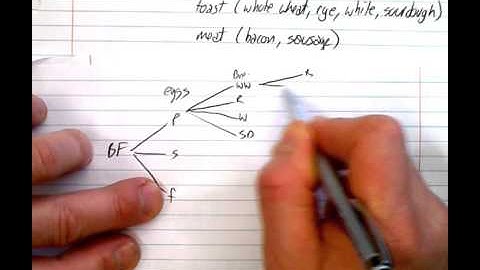 toast (whole wheat, rye, white, sourdough)
meat (bacon, sausage)
eggs
WW
R
P
W
SD
BF
S
f